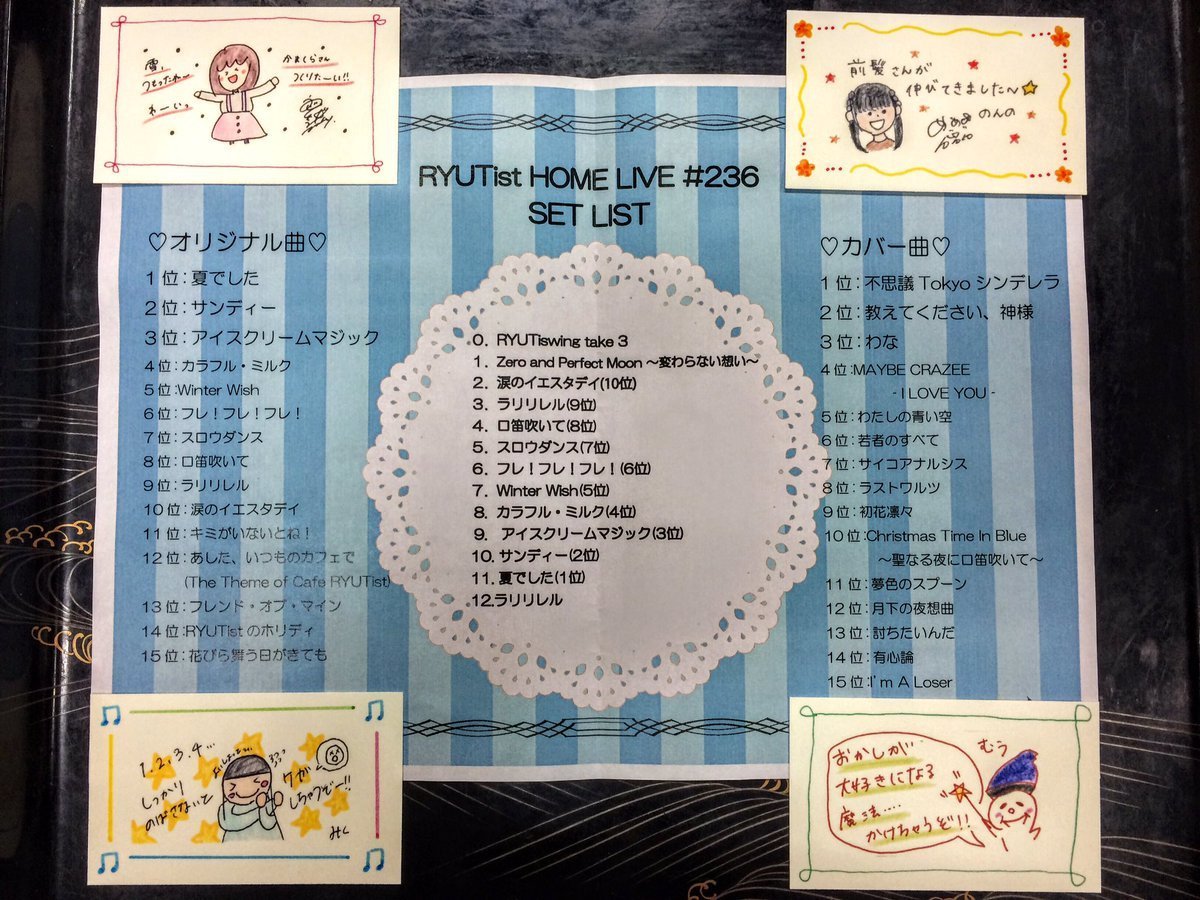 雪、
つもったねー
わーいっ
かまくらさん
つくりたーい!!
前髪さんが
伸びてきました〜
のんの
RYUTist HOME LIVE #236
SET LIST
♡オリジナル曲♡
1位:夏でした
2位:サンディー
3位:アイスクリームマジック
4位:カラフル・ミルク
5位:Winter Wish
6位:フレ!フレ!フレ!
7位:スロウダンス
8位:口笛吹いて
9位:ラリリレル
10位:涙のイエスタデイ
11位:キミがいないとね!
12位:あした、いつものカフェで
(The Theme of Cafe RYUTist)
13位:フレンド・オブ・マイン
14位:RYUTistのホリディ
15位:花びら舞う日がきても
0. RYUTiswing take 3
1. Zero and Perfect Moon 〜変わらない想い〜
2. 涙のイエスタデイ(10位)
3. ラリリレル(9位)
4. 口笛吹いて(8位)
5. スロウダンス(7位)
6. フレ!フレ!フレ!(6位)
7. Winter Wish(5位)
8. カラフル・ミルク(4位)
9. アイスクリームマジック(3位)
10. サンディー(2位)
11. 夏でした(1位)
12.ラリリレル
♡カバー曲♡
1位:不思議 Tokyo シンデレラ
2位:教えてください、神様
3位:わな
4位:MAYBE CRAZEE
- I LOVE YOU -
5位:わたしの青い空
6位:若者のすべて
7位:サイコアナルシス
8位:ラストワルツ
9位:初花凛々
10位:Christmas Time In Blue
〜聖なる夜に口笛吹いて〜
11位:夢色のスプーン
12位:月下の夜想曲
13位:討ちたいんだ
14位:有心論
15位:I'm A Loser
1.2.3.4...
しっかり
のばさないと
ケガ
しちゃうぞー!!
みく
むう
おかしが
大好きになる
魔法....
かけちゃうぞ!!